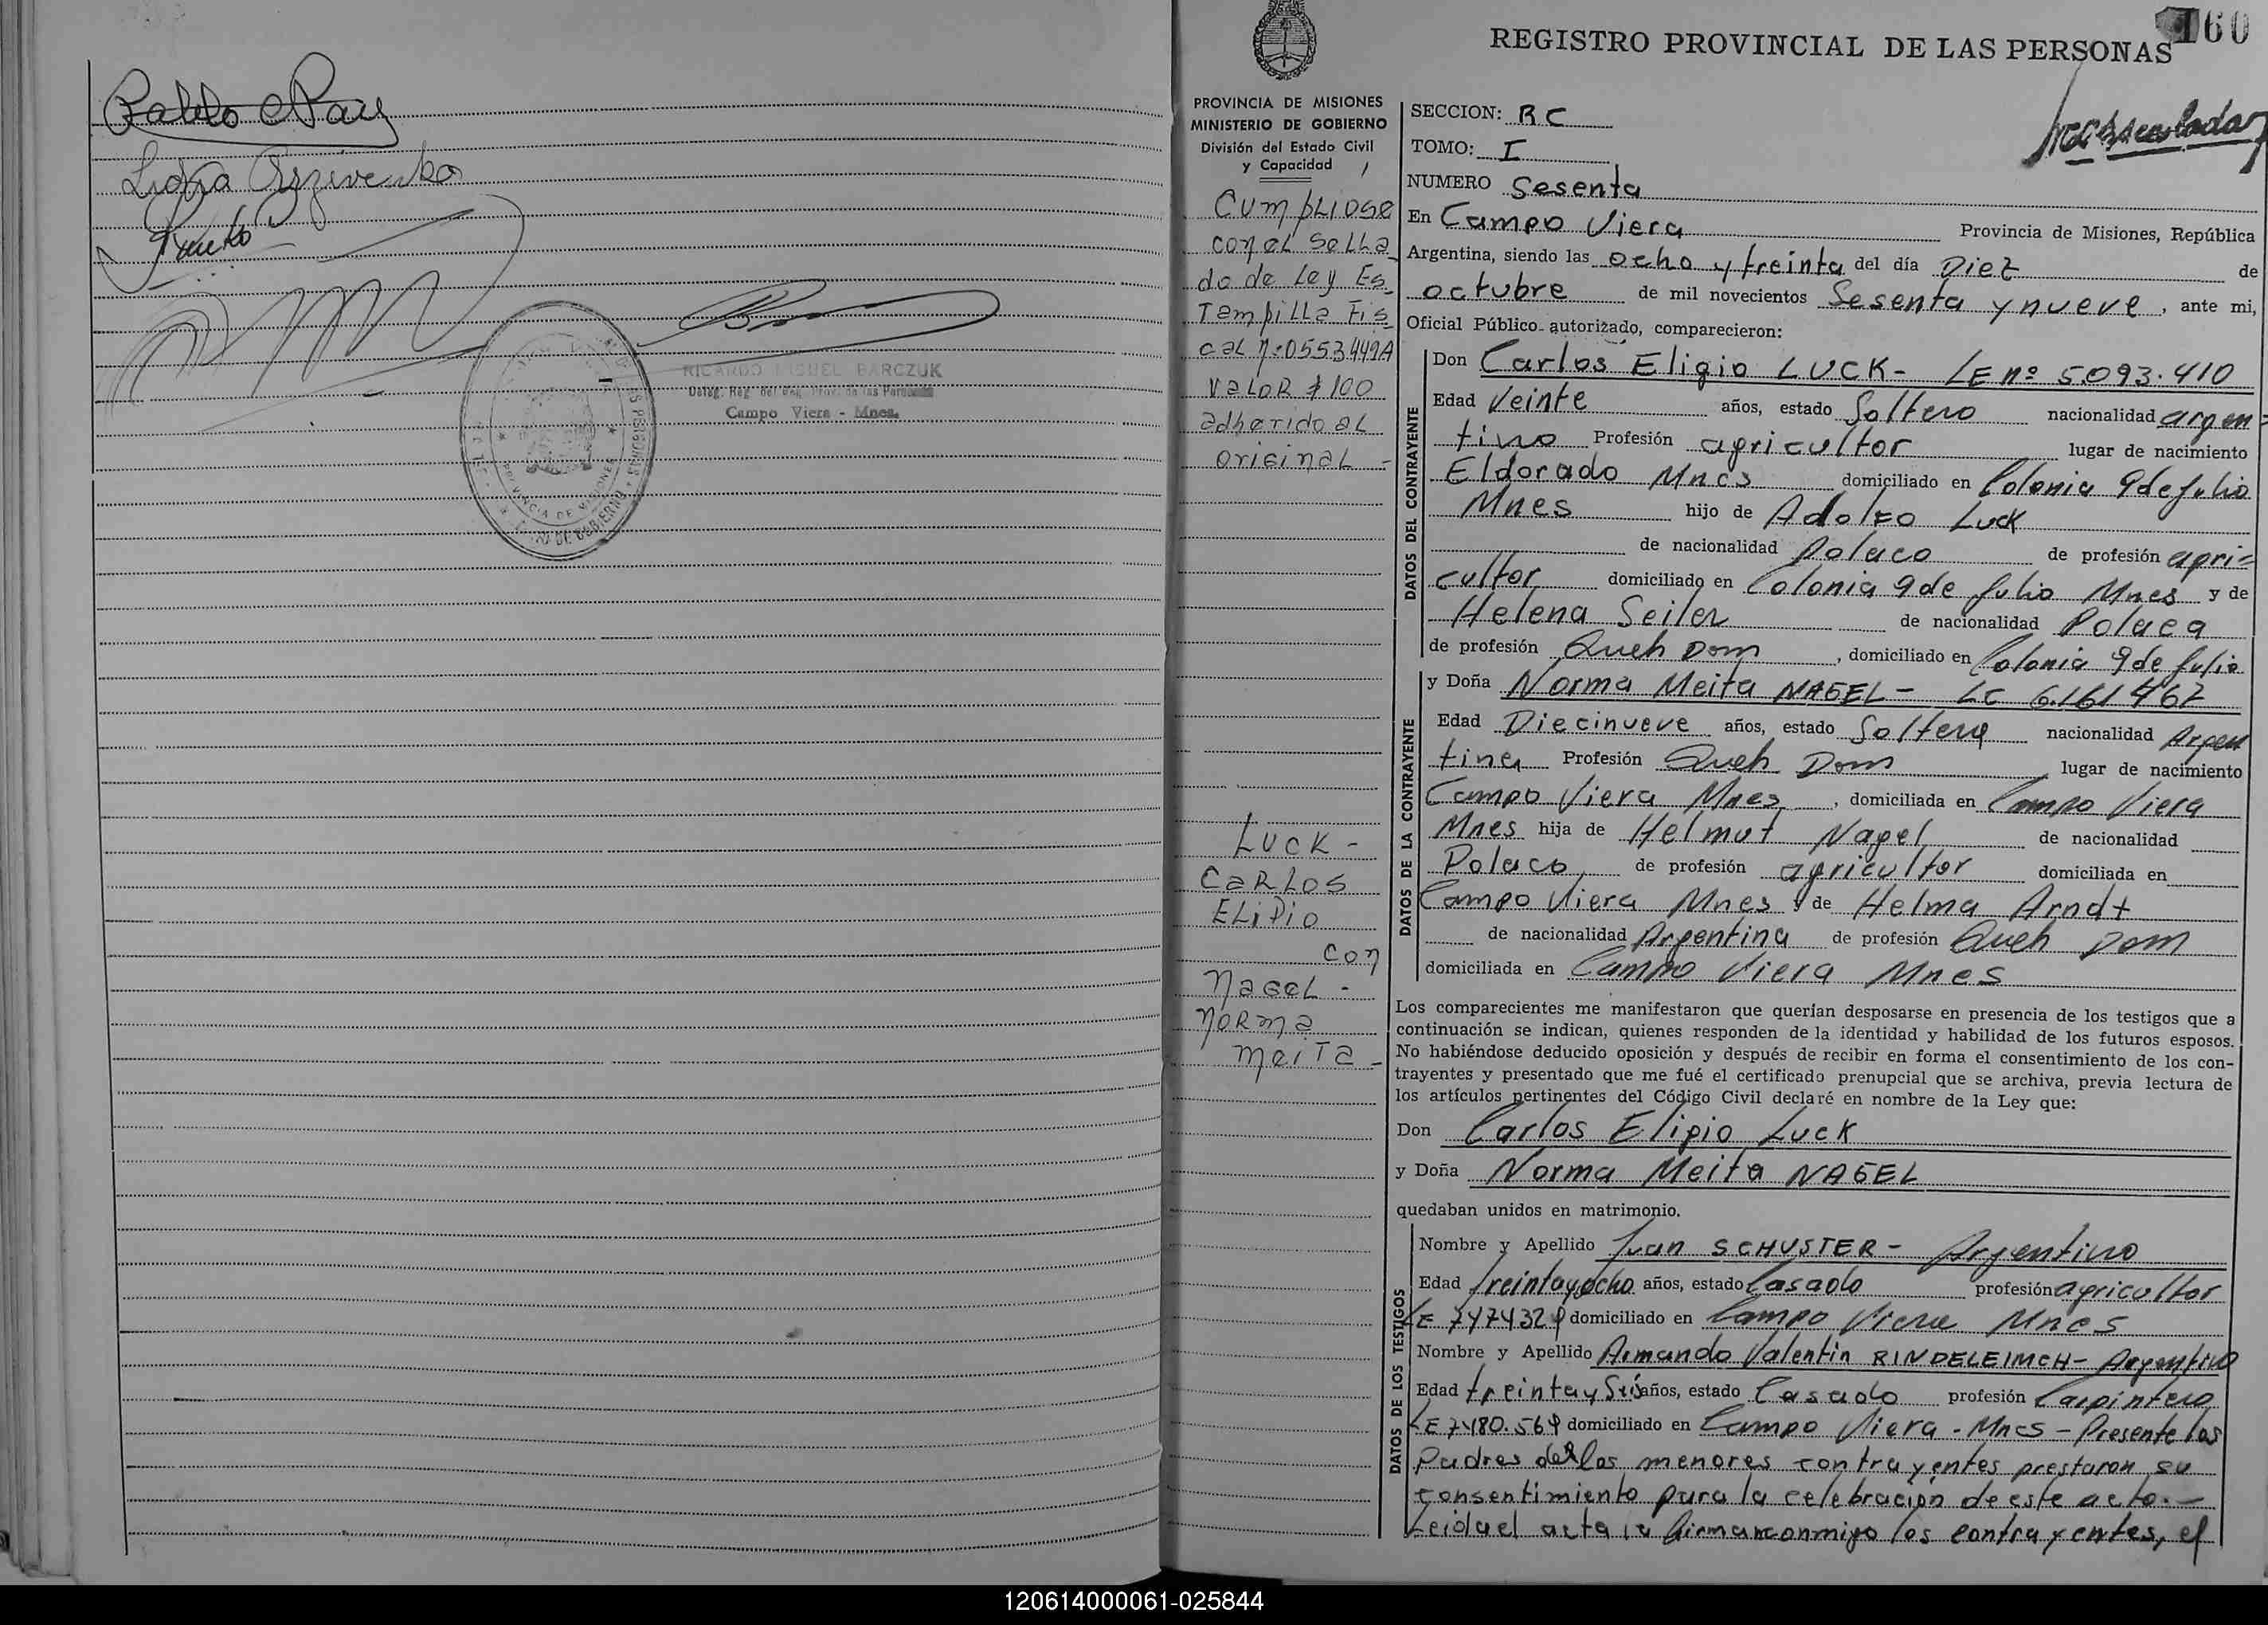 Pablo
Lidia
RICARDO MIGUEL BARCZUK
Deleg. Reg. del Reg. Prov. de las Personas
Campo Viera - Mnes.
PROVINCIA DE MISIONES
160
REGISTRO PROVINCIAL DE LAS PERSONAS
PROVINCIA DE MISIONES
MINISTERIO DE GOBIERNO
División del Estado Civil
y Capacidad
Cumpliose
con el Sella
do de Ley Es
Tampilla Fis
cal nº 0553449A
Valor $ 100
adherido al
original -
LUCK -
CARLOS
ELIPIO
con
NAGEL -
NORMA
MEITA -
SECCION: RC
TOMO: I
NUMERO Sesenta
En Campo Viera Provincia de Misiones, República
Argentina, siendo las ocho y treinta del día Diez de
octubre de mil novecientos Sesenta y nueve, ante mi,
Oficial Público autorizado, comparecieron:
DATOS DEL CONTRAYENTE
Don Carlos Eligio LUCK - LE nº 5093.410
Edad Veinte años, estado Soltero nacionalidad argen=
tino Profesión agricultor lugar de nacimiento
Eldorado Mnes domiciliado en Colonia 9 de Julio
Mnes hijo de Adolfo Luck
de nacionalidad Polaco de profesión agri=
cultor domiciliado en Colonia 9 de Julio Mnes y de
Helena Seiler de nacionalidad Polaca
de profesión Queh Dom, domiciliado en Colonia 9 de Julio
DATOS DE LA CONTRAYENTE
y Doña Norma Meita NAGEL - LC 6.161467
Edad Diecinueve años, estado Soltera nacionalidad Argen
tina Profesión Queh Dom lugar de nacimiento
Campo Viera Mnes, domiciliada en Campo Viera
Mnes hija de Helmut Nagel de nacionalidad
Polaco de profesión agricultor domiciliada en
Campo Viera Mnes y de Helma Arndt
de nacionalidad Argentina de profesión Queh Dom
domiciliada en Campo Viera Mnes
Los comparecientes me manifestaron que querían desposarse en presencia de los testigos que a
continuación se indican, quienes responden de la identidad y habilidad de los futuros esposos.
No habiéndose deducido oposición y después de recibir en forma el consentimiento de los con-
trayentes y presentado que me fué el certificado prenupcial que se archiva, previa lectura de
los artículos pertinentes del Código Civil declaré en nombre de la Ley que:
Don Carlos Elipio Luck
y Doña Norma Meita NAGEL
quedaban unidos en matrimonio.
DATOS DE LOS TESTIGOS
Nombre y Apellido Juan SCHUSTER - Argentino
Edad treintayocho años, estado Casado profesión agricultor
LE 7474329 domiciliado en Campo Viera Mnes
Nombre y Apellido Armando Valentin RINDELEIMCH - Argentino
Edad treinta y Seis años, estado Casado profesión Carpintero
LE 7480.569 domiciliado en Campo Viera - Mnes - Presente los
Padres de los menores contrayentes prestaron su
consentimiento para la celebración de este acto. -
Leida el acta la firman conmigo los contrayentes, el
120614000061-025844